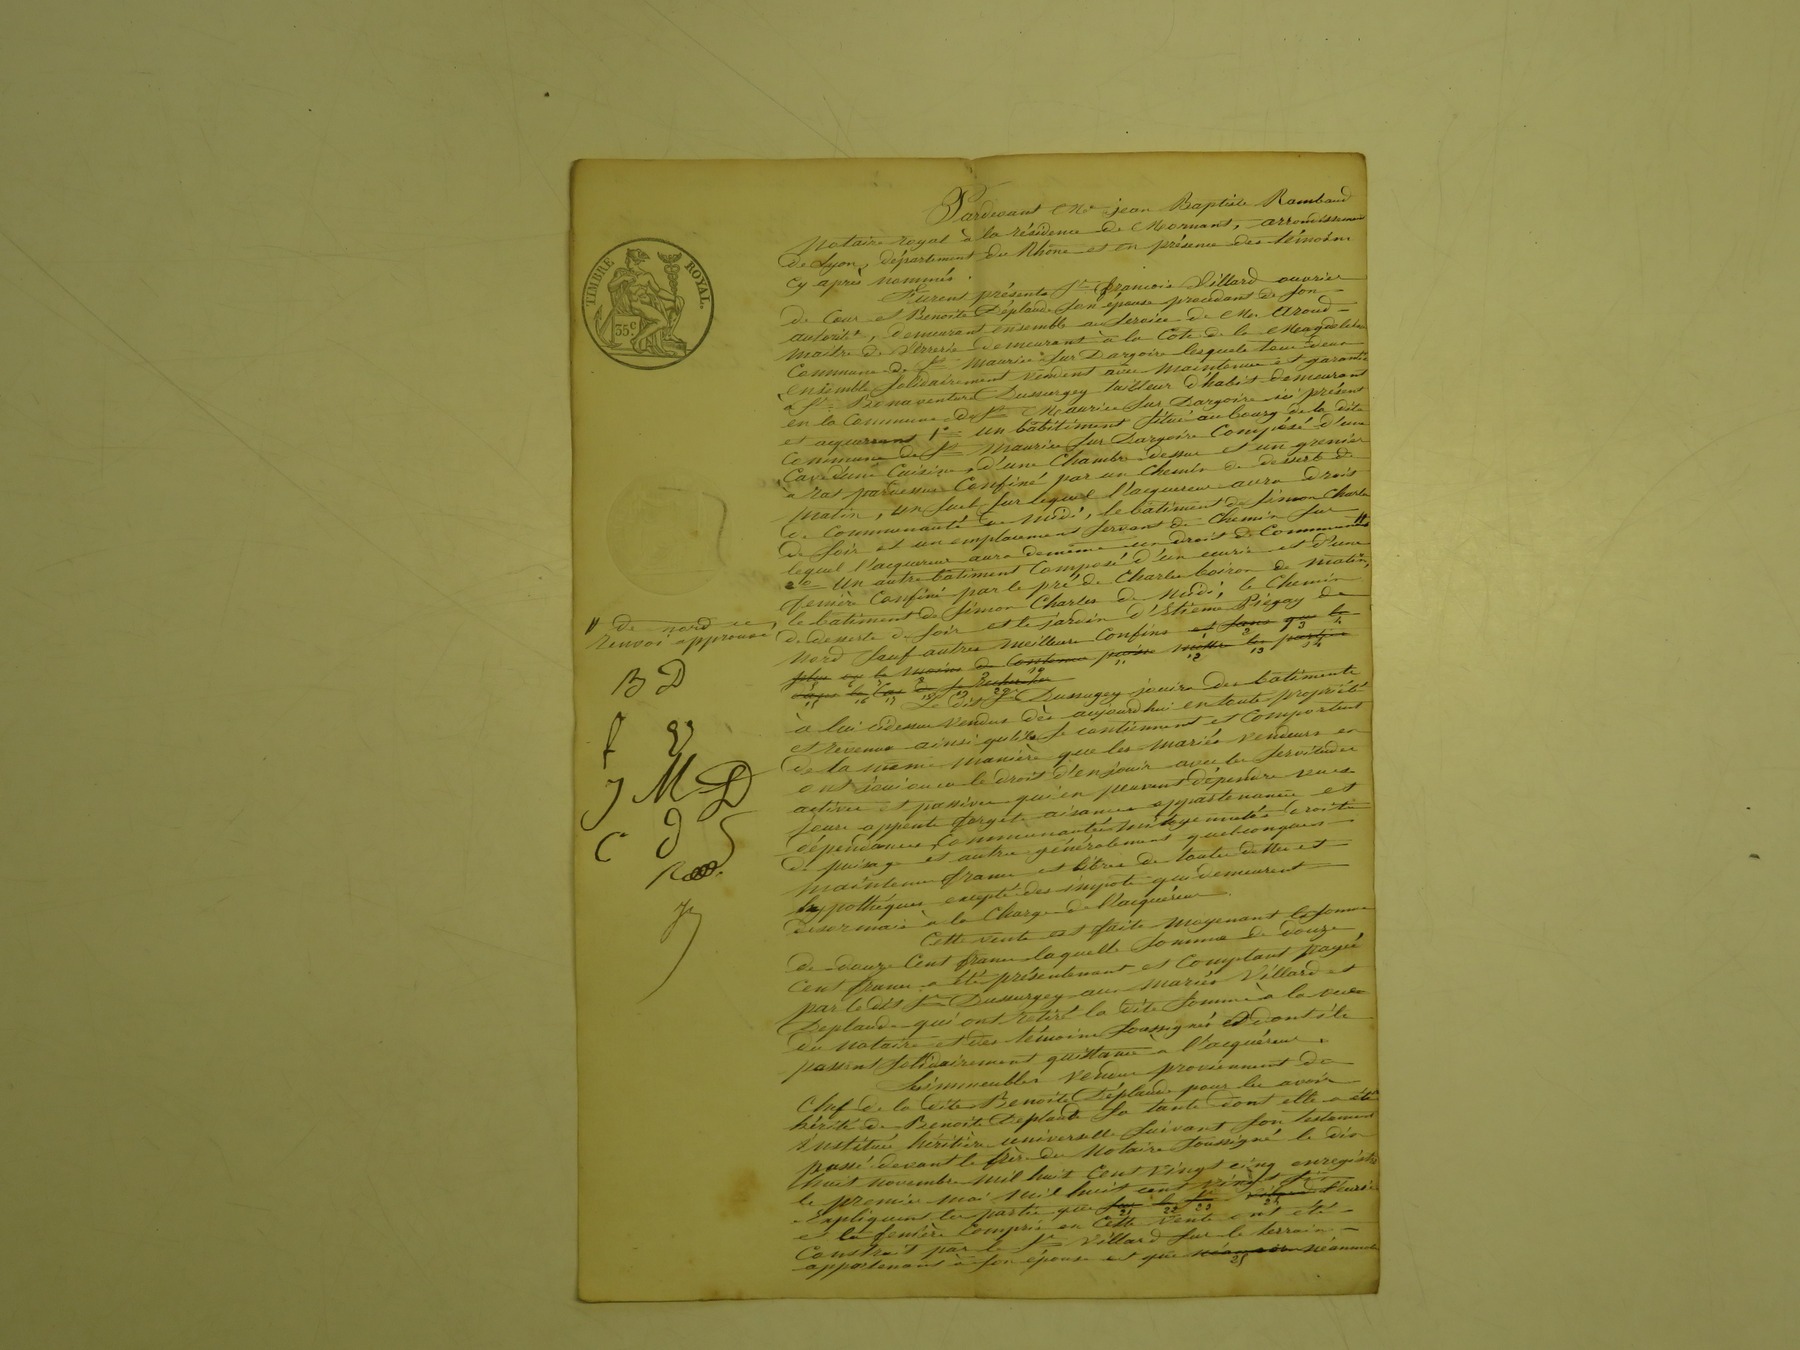 Pardevant Me jean Baptiste Rambaud
Notaire royal à la résidence de Mornant, arrondissement
de Lyon, département du Rhône et en présence des témoins
cy après nommés
TIMBRE ROYAL.
35c
Furent présents Sr françois Villard ouvrier
de Cour et Benoite Déplaude son épouse procédant de son
autorité, demeurant ensemble au service de Mr Aroud
maitre de Verrerie demeurant à la Cote de la Magdeleine
Commune de St Maurice sur Dargoire lesquels tous deux
ensemble solidairement vendent avec maintenue et garantie
à Sr Bonaventure Dussurgey tailleur d'habit demeurant
en la Commune de St Maurice sur Dargoire ici présent
et acquerrant 1o un bâtitiment situé au bourg de la dite
Commune de St Maurice sur Dargoire Composé d'une
Cave d'une Cuisine, d'une Chambre dessus et un grenier
à rat pardessus Confiné par un Chemin de desserte de
matin, un suel sur lequel l'acquereur aura droit
de Communauté de Midi, le batiment de Simon Charles
de soir et un emplacement servant de Chemin sur
lequel l'acquereur aura demême un droit de Communauté
2o Un autre batiment Composé d'un ecurie et d'une
fenière Confiné par le pré de Charles Boiron de matin,
le batiment de Simon Charles de Midi, le Chemin
de desserte de soir et le jardin d'Etienne Piégay de
Nord sauf autres meilleurs Confins et sans que le
plus ou le moins de Contenu puisse mettre les parties
dans le Cas de se rechercher
// de nord ce
renvoi approuvé
B D
f V
J M D
C D S
R
Le dit Sr Dussurgey jouira des batiments
à lui cidessus vendus dès aujourdhui en toute propriété
et revenus ainsi quils se contiennent et Comportent
de la même manière que les mariés vendeurs en
ont joui ou eu le droit d'en jouir avec les servitudes
actives et passives qui en peuvent dépendre vues
jours appents forgets aisances appartenances et
dépendances, Communautés mitoyennetés droits
de puisage et autres généralement quelconques
maintenus francs et libres de toutes dettes et
hypothéques excepté des impots qui demeurent
désormais à la Charge de l'acquéreur.
Cette vente est faite moyenant la somme
de douze Cent francs laquelle somme de douze
Cent francs a été présentement et Comptant payée
par le dit Sr Dussurgey aux mariés Villard et
Deplaude qui ont retiré la dite somme à la vue
du notaire et des témoins soussignés et dont ils
passent solidairement quittance à l'acquéreur.
Les immeubles vendus proviennent du
Chef de la dite Benoite Déplaude pour les avoir
hérité de Benoite Deplaude sa tante dont elle a été
instituée héritière universelle suivant son testament
passé devant le frère du Notaire soussigné le dix
huit novembre mil huit Cent vingt cinq enregistré
le premier mai mil huit cent vingt six
Expliquent les parties que l'écurie
et la fenière Compris en Cette vente ont été
Construit par le Sr Villard sur le terrain
appartenant à son épouse et que néanmoins